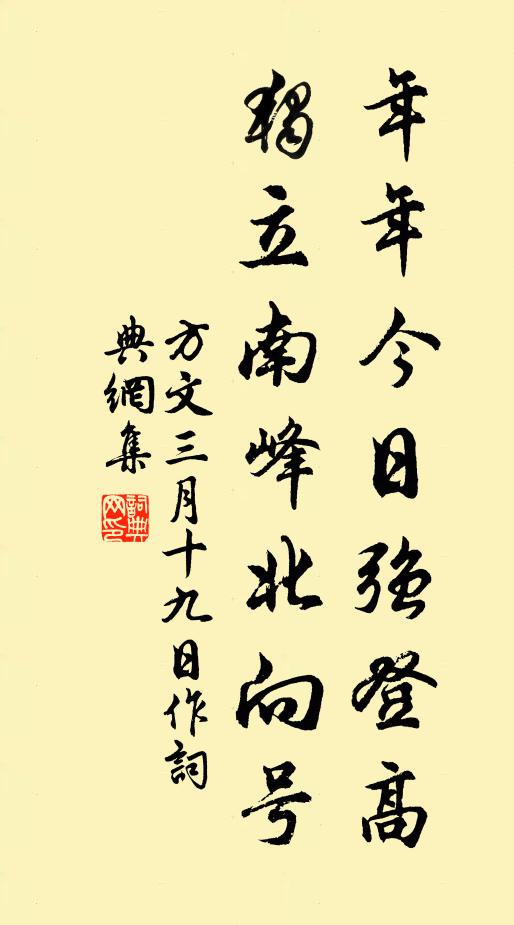 年年今日強登高
獨立南峰北向号
方文三月十九日作詞
典網集
詞典網印